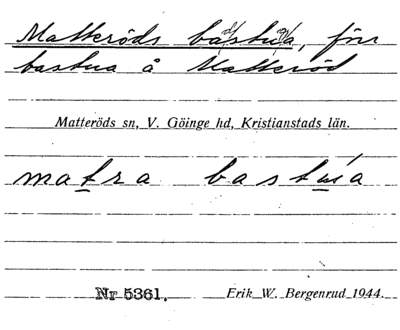 Matteröds bastua, förr
bastua å Matteröd
Matteröds sn, V. Göinge hd, Kristianstads län.
matra bastua
Nr 5361. Erik W. Bergenrud 1944.